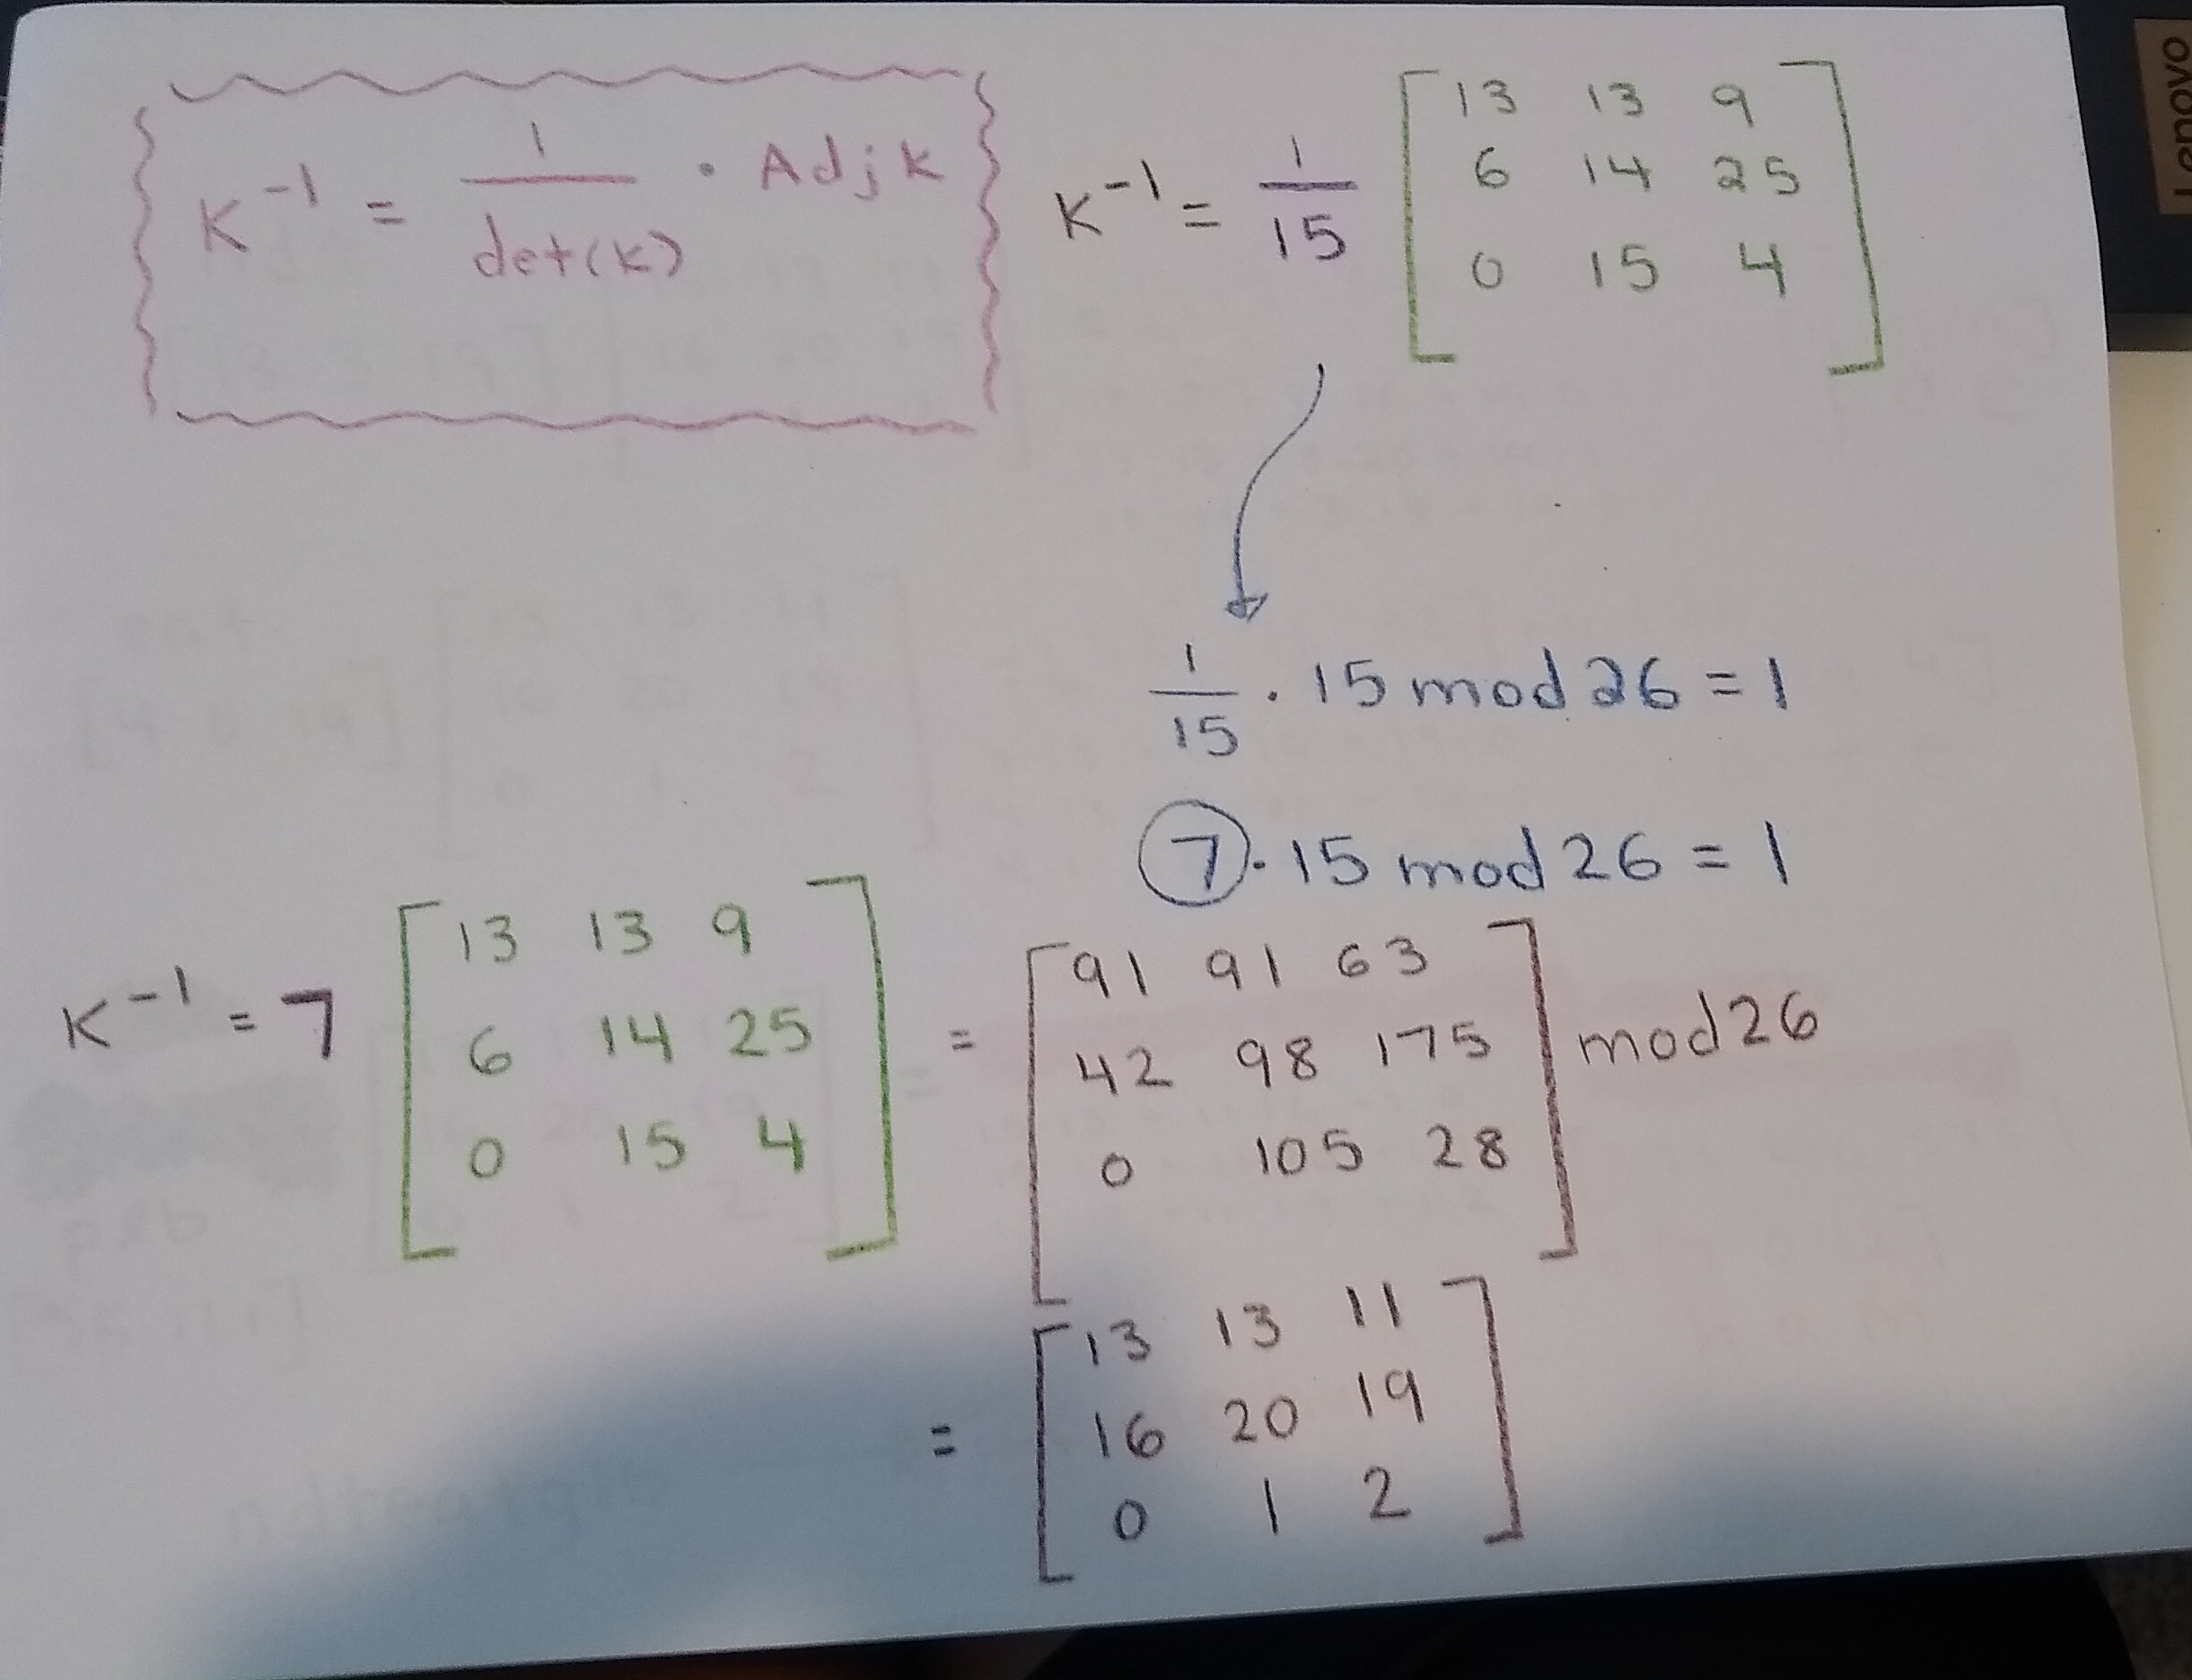 K⁻¹ = 1/det(K) · Adj K
K⁻¹ = 1/15 [13 13 9
6 14 25
0 15 4]
1/15 · 15 mod 26 = 1
7 · 15 mod 26 = 1
K⁻¹ = 7 [13 13 9
6 14 25
0 15 4]
= [91 91 63
42 98 175
0 105 28] mod 26
= [13 13 11
16 20 19
0 1 2]
Lenovo